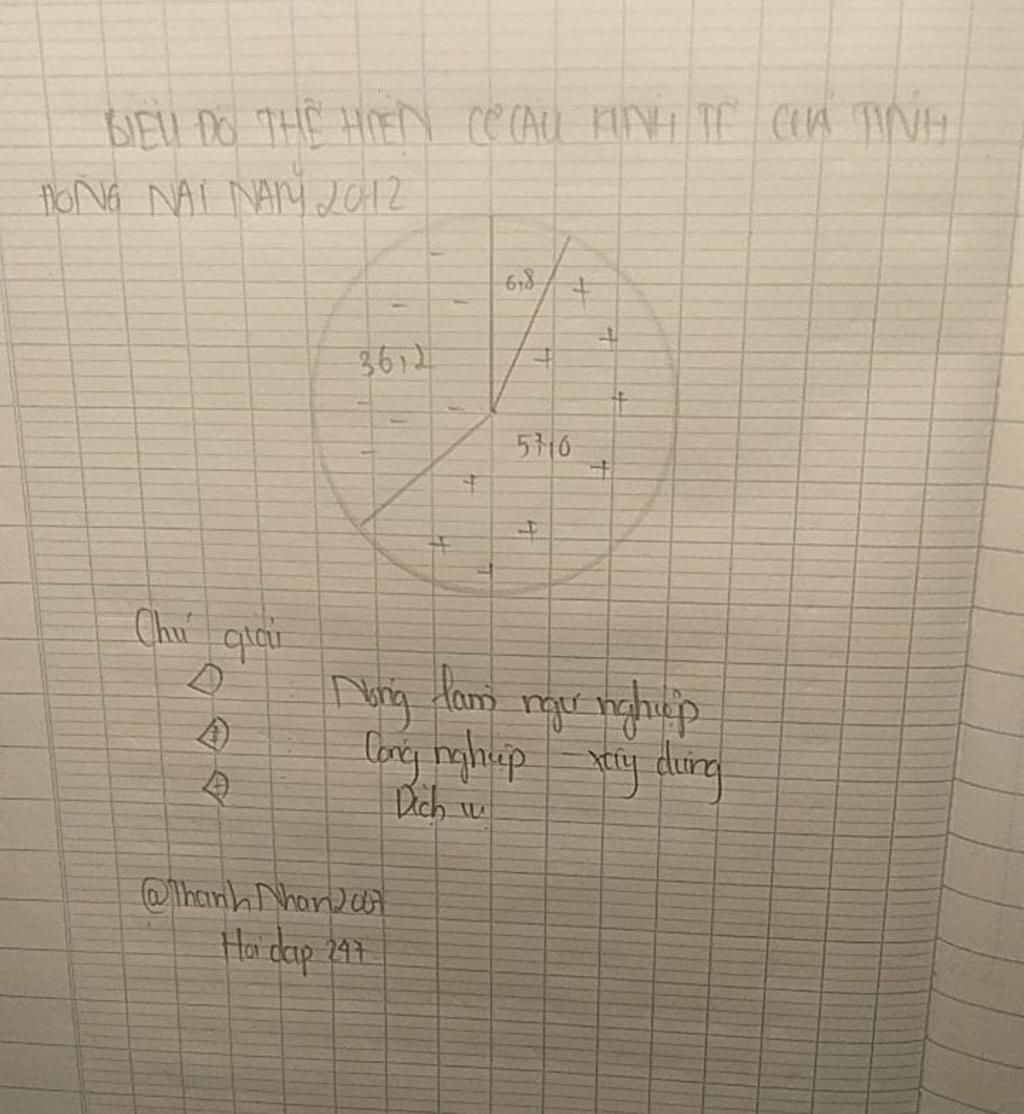 BIỂU ĐỒ THỂ HIỆN CƠ CẤU KINH TẾ CỦA TỈNH
ĐỒNG NAI NĂM 2012
6,8
36,2
57,0
Chú giải
Nông lâm ngư nghiệp
Công nghiệp - xây dựng
Dịch vụ
@ThanhNhan2007
Hoi dap 247